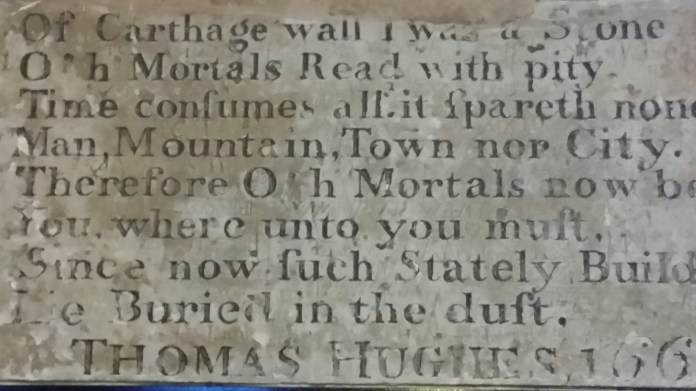 Of Carthage wall I was a Stone
O'h Mortals Read with pity.
Time conſumes all.it ſpareth non
Man,Mountain,Town nor City.
Therefore O'h Mortals now be
You. where unto you muſt.
Since now ſuch Stately Build
Lie Buried in the duſt.
THOMAS HUGHES 166